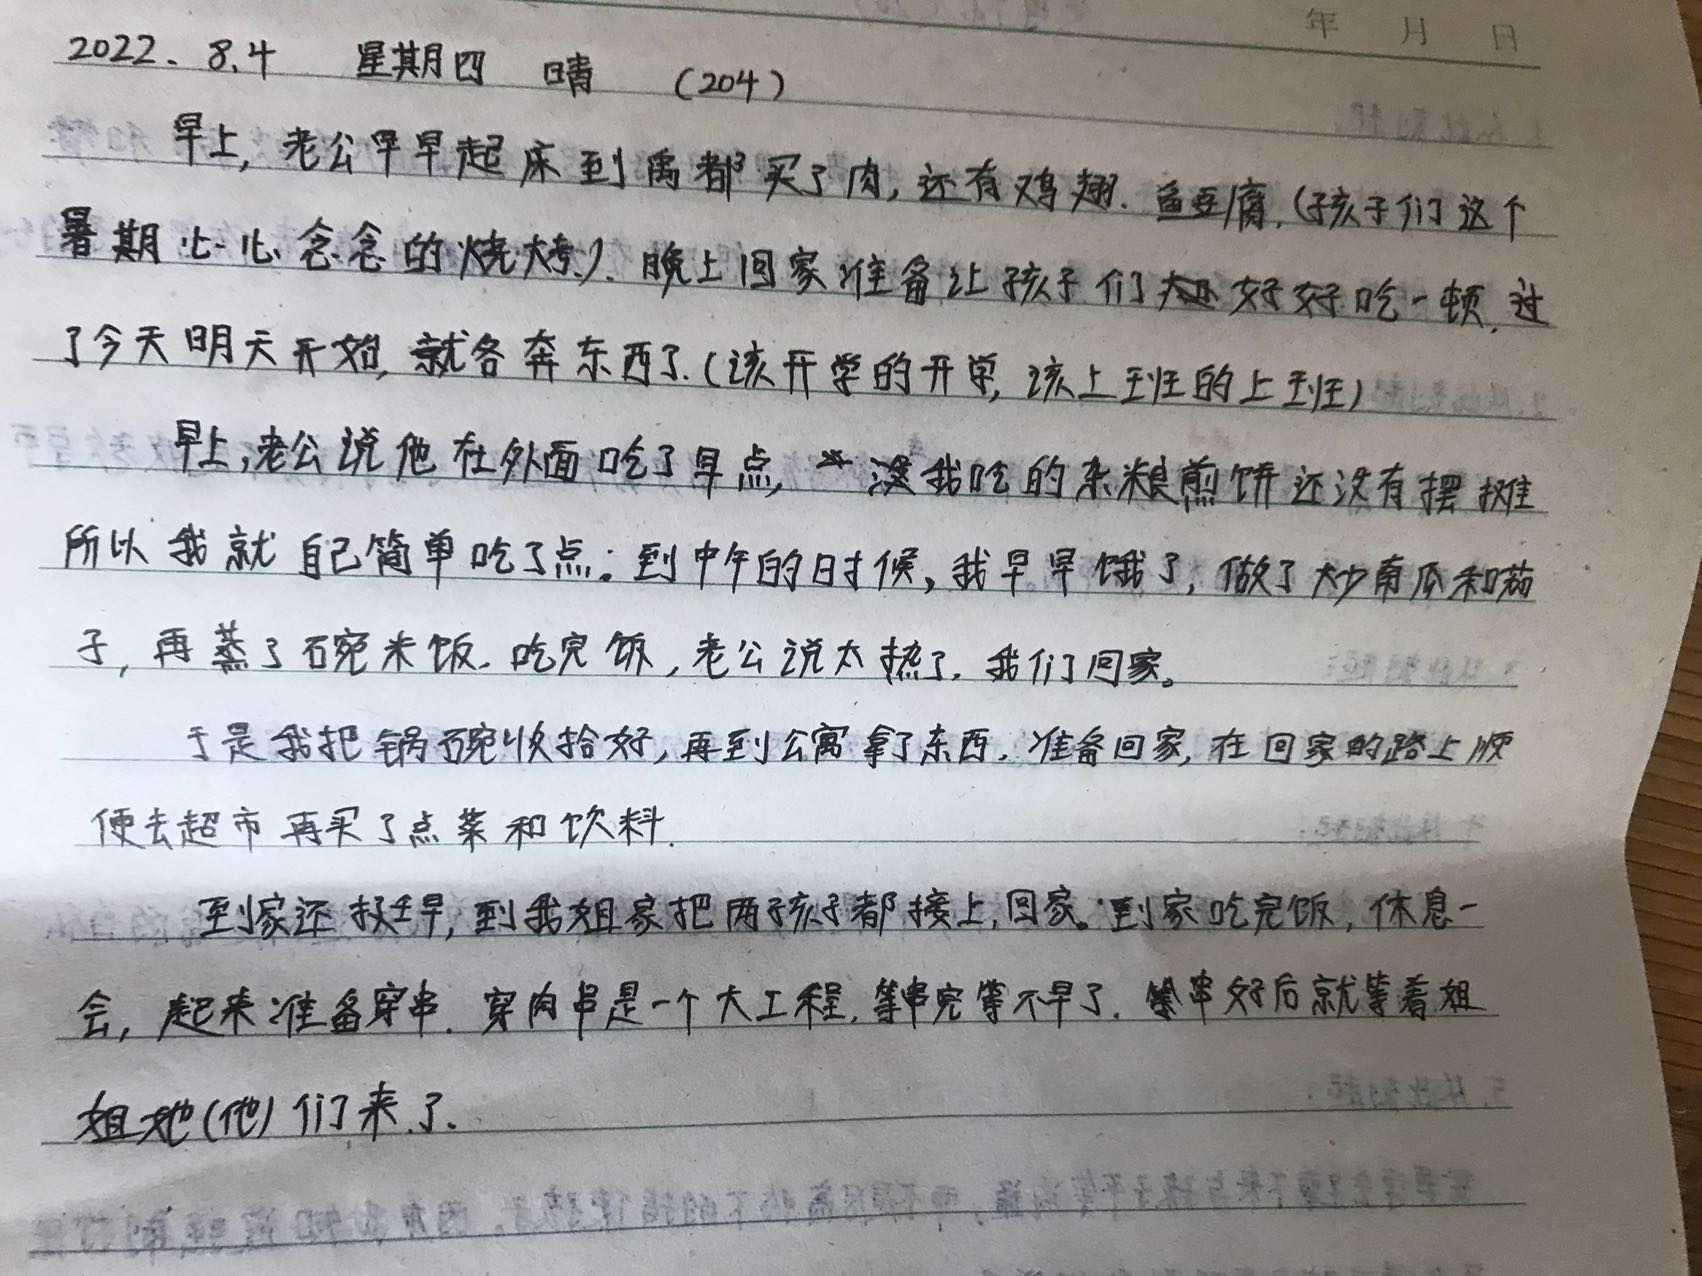 年 月 日
2022. 8.4 星期四 晴 (204)
早上,老公早早起床到禹都买了肉,还有鸡翅.鱼豆腐,(孩子们这个
暑期心心念念的烧烤).晚上回家准备让孩子们好好吃一顿,过
了今天明天开始,就各奔东西了.(该开学的开学,该上班的上班)
早上,老公说他在外面吃了早点,没我吃的杂粮煎饼还没有摆摊
所以我就自己简单吃了点。到中午的时候,我早早饿了,做了炒南瓜和茄
子,再蒸了碗米饭.吃完饭,老公说太热了.我们回家。
于是我把锅碗收拾好,再到公寓拿了东西.准备回家,在回家的路上顺
便去超市再买了点菜和饮料.
到家还挺早,到我姐家把两孩子都接上,回家。到家吃完饭,休息一
会,起来准备穿串.穿肉串是一个大工程,等串完等不早了.串好后就等着姐
姐她(他)们来了.